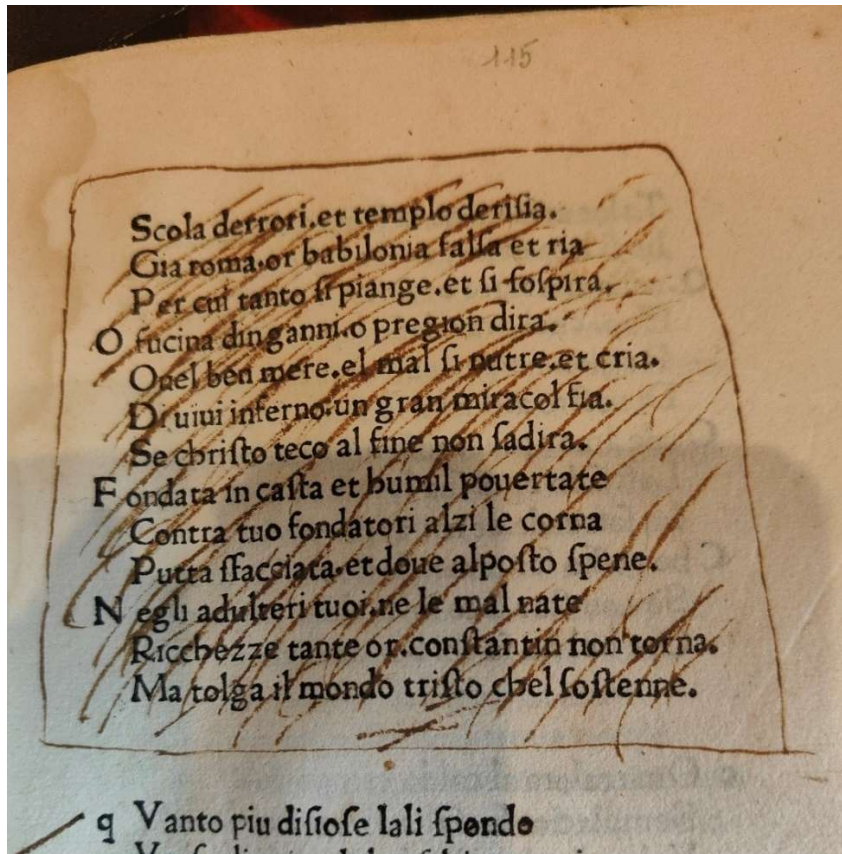 115
Scola derrori.et templo deriſia.
Gia roma.or babilonia falſa et ria
Per cui tanto ſi piange.et ſi ſoſpira.
O fucina dinganni.o pregion dira.
Ouel ben more.el mal ſi nutre.et cria.
Di uiui inferno.un gran miracol fia.
Se chriſto teco al fine non ſadira.
Fondata in caſta et humil pouertate
Contra tuo fondatori alzi le corna
Putta ſfacciata.et doue alpoſto ſpene.
Negli adulteri tuoi.ne le mal nate
Ricchezze tante or.conſtantin non torna.
Ma tolga il mondo triſto chel ſoſtenne.
q Vanto piu diſioſe lali ſpendo